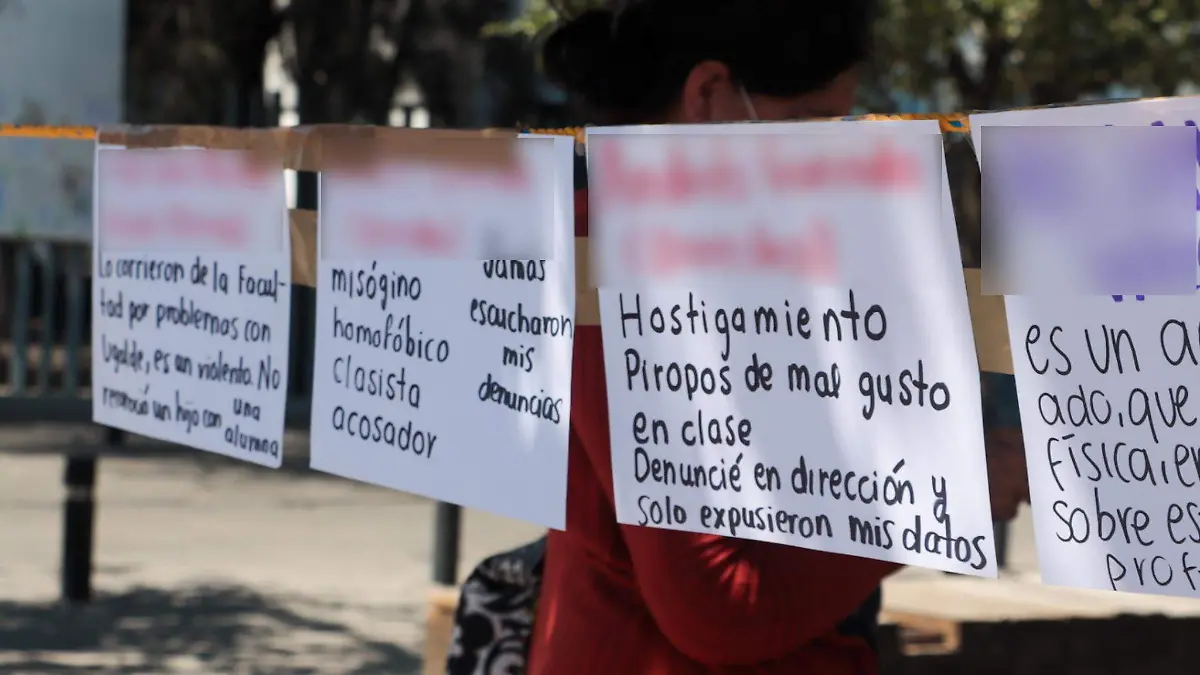 Lo corrieron de la Facul-
tad por problemas con
Ugalde, es un violento. No
reconoció un hijo con una
alumna
misógino
homofóbico
clasista
acosador
Jamás
escucharon
mis
denuncias
Hostigamiento
Piropos de mal gusto
en clase
Denuncié en dirección y
solo expusieron mis datos
es un
ado, que
física, en
sobre es
prof